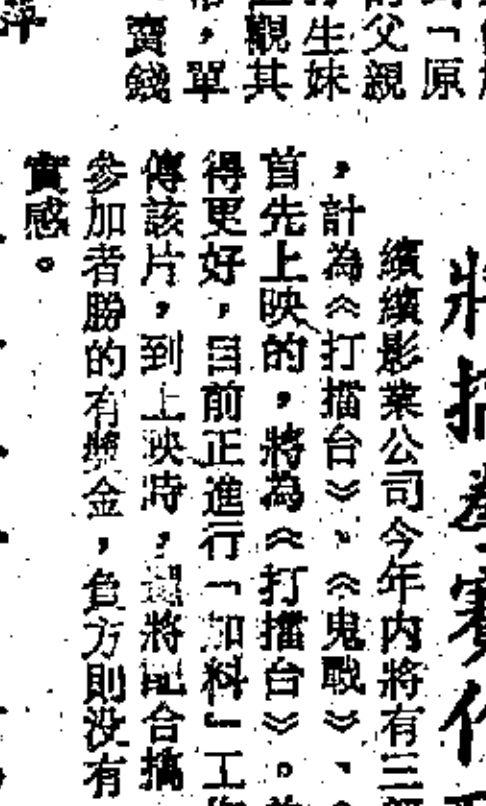 「原
父親
生妹
觀其
，單
賣錢
將搞
賽作
繽繽影業公司今年內將有三
，計為《打擂台》、《鬼戰》、
首先上映的，將為《打擂台》。
得更好，目前正進行「加料」工
傳該片，到上映時，還將配合搞
參加者勝的有獎金，負方則没有
實感。